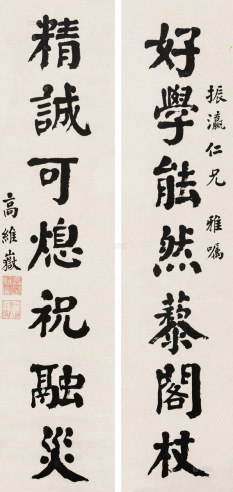 好學能然藜閣杖
振瀛仁兄 雅囑
精誠可熄祝融災
高維嶽